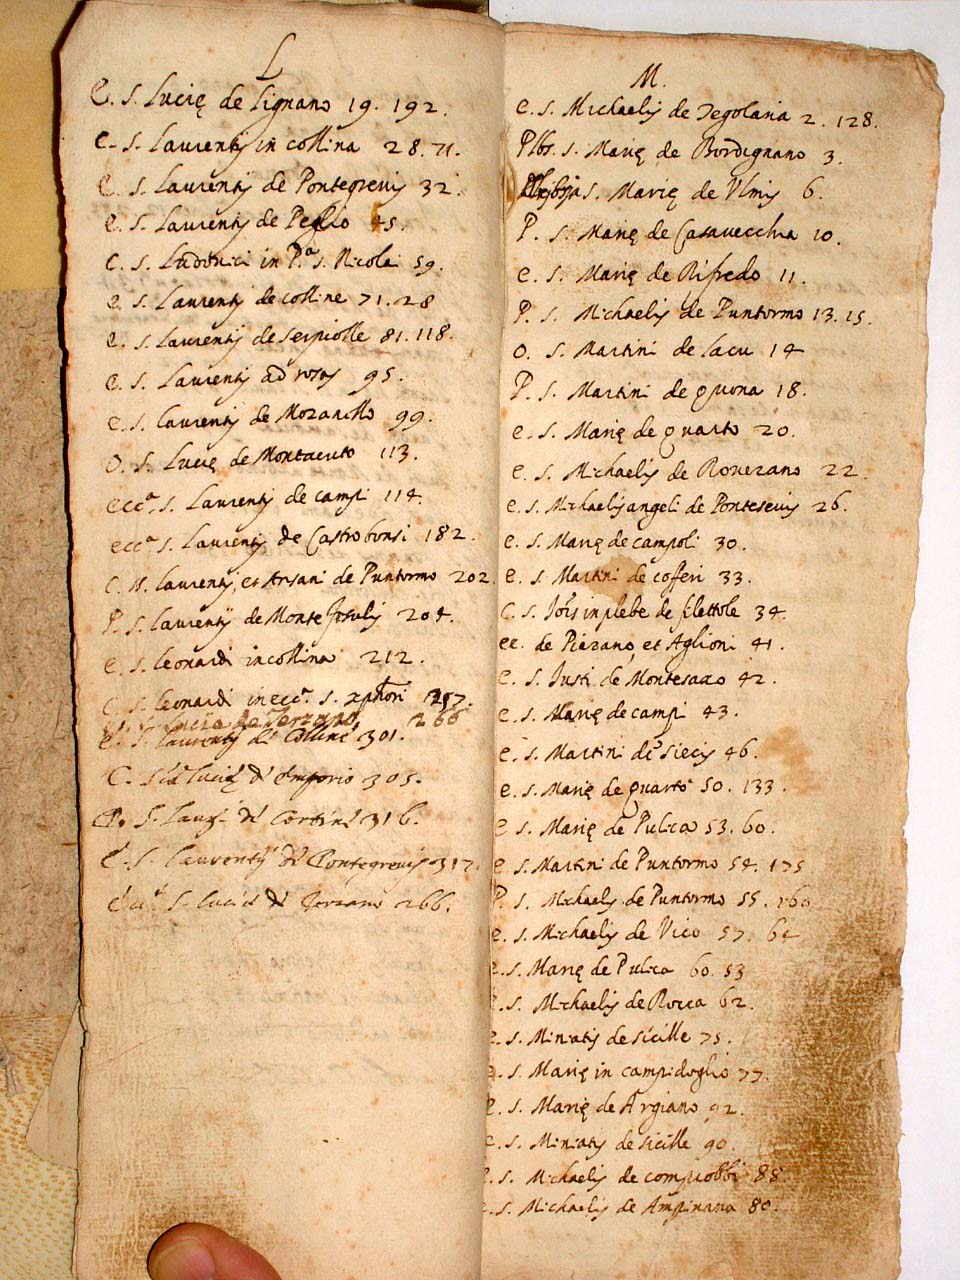 L
e. s. Lucię de Lignano 19. 192.
e. s. Laurentij in collina 28. 71.
e. s. Laurentij de Pontegrevis 32.
e. s. Laurentij de Peglio 45.
C. s. Ludovici in P.ª s. Nicolai 59.
e. s. Laurentij de colline 71. 28
e. s. Laurentij de serpiolle 81. 118.
e. s. Laurentij ad 95.
e. s. Laurentij de Mozanello 99.
O. s. Lucię de Montacuto 113.
eccª. s. Laurentij de campi 114.
eccª s. Laurentij de Castrobonsi 182.
C. Laurentij, et Arsani de Puntormo 202.
P. s. Laurentij de Monte fesulis 204.
e. s. Leonardi in collina 212.
C. s. Leonardi in eccª. s. xpħori 257.
Lucia de Terzano, 266
e. s. Laurentij de Colline 301.
C. Stª Lucię d' Emporio 305.
P. s. Laur. de Cortine 316.
e. s. Laurentij de Pontegrevis 317.
s. Lucię de Terzano 266.
M.
e. s. Michaelis de Tegolaria 2. 128.
Plbs. s. Marię de Bordignano 3.
s. Marię de Ulmis 6.
P. s. Marię de Casavecchia 10.
e. s. Marię de Rifredo 11.
P. s. Michaelis de Puntormo 13. 15.
O. s. Martini de Lacu 14
P. s. Martini de guona 18.
e. s. Marię de quarto 20.
e. s. Michaelis de Roverano 22.
e. s. Michaelis angeli de Pontesevis 26.
e. s. Marię de campoli 30.
e. s. Martini de cofferi 33.
C. s. Jois in plebe de filettole 34.
ee. de Pierano, et Aglioni 41.
e. s. Justi de Montesaxo 42.
e. s. Marię de campi 43.
e. s. Martini de siecis 46.
e. s. Marię de quarto 50. 133.
e. s. Marię de Pulica 53. 60.
e. s. Martini de Puntormo 54. 175
P. s. Michaelis de Puntormo 55. 160
e. s. Michaelis de Vico 57.
e. s. Marię de Pulica 60. 53
e. s. Michaelis de Rocca 62.
e. s. Miniatis de sicille 75.
e. s. Marię in campidoglio 77.
e. s. Marię de Argiano 92.
e. s. Miniatis de sicille 90.
e. s. Michaelis de compiobbi 88.
e. s. Michaelis de Ampinana 80.